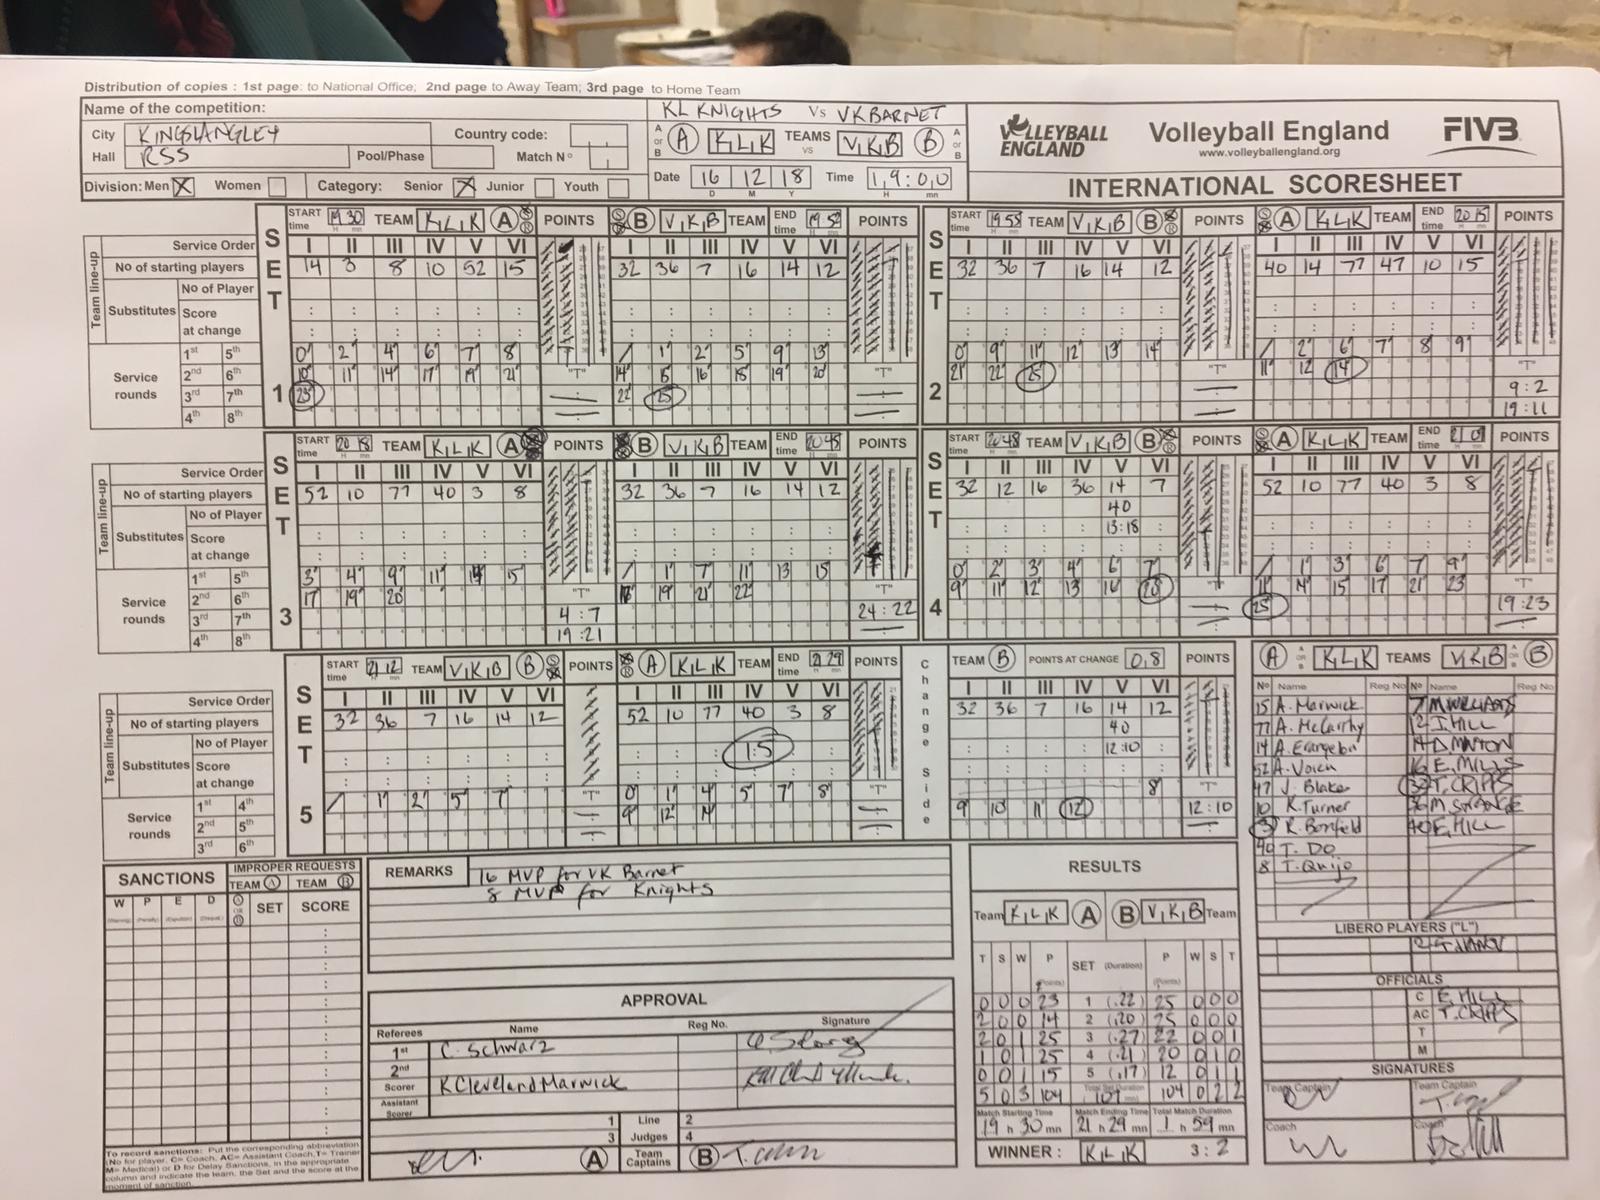 Distribution of copies : 1st page: to National Office; 2nd page to Away Team; 3rd page to Home Team
Name of the competition:
KL KNIGHTS Vs VK BARNET
City KINGSLANGLEY Country code:
Hall RSS Pool/Phase Match Nº
A or B A KLK TEAMS vs VKB B A or B
Division: Men X Women Category: Senior X Junior Youth
Date 16 12 18 Time 19:00
D M Y H mn
VOLLEYBALL ENGLAND
Volleyball England
www.volleyballengland.org
FIVB
INTERNATIONAL SCORESHEET
SET 1
START time 19 30 TEAM KLK A POINTS B VKB TEAM END time 19 52 POINTS
Service Order I II III IV V VI I II III IV V VI
Team line-up
No of starting players 14 3 8 10 52 15 32 36 7 16 14 12
Substitutes No of Player
Score at change
Service rounds
1st 5th 0 2 4 6 7 8 1 2 5 9 13
2nd 6th 10 11 14 17 19 21 "T" 14 15 16 18 19 20 "T"
3rd 7th 23 22 25
4th 8th
SET 2
START time 19 55 TEAM VKB B POINTS A KLK TEAM END time 20 15 POINTS
I II III IV V VI I II III IV V VI
32 36 7 16 14 12 40 14 77 47 10 15
0 9 11 12 13 14 2 6 7 8 9
21 22 25 "T" 11 12 14 "T"
9 : 2
19 : 11
SET 3
START time 20 18 TEAM KLK A POINTS B VKB TEAM END time 20 45 POINTS
Service Order I II III IV V VI I II III IV V VI
Team line-up
No of starting players 52 10 77 40 3 8 32 36 7 16 14 12
Substitutes No of Player
Score at change
Service rounds
1st 5th 3 4 9 11 15 1 7 11 13 15
2nd 6th 17 19 20 "T" 19 21 22 "T"
3rd 7th 4 : 7 24 : 22
4th 8th 19 : 21
SET 4
START time 20 48 TEAM VKB B POINTS A KLK TEAM END time 21 09 POINTS
I II III IV V VI I II III IV V VI
32 12 16 36 14 7 52 10 77 40 3 8
40
13:18
0 2 3 4 6 7 1 3 6 7 9
9 11 12 13 16 20 "T" 11 14 15 17 21 23 "T"
25 19 : 23
SET 5
START time 21 12 TEAM VKB B POINTS A KLK TEAM END time 21 29 POINTS
Service Order I II III IV V VI I II III IV V VI
Team line-up
No of starting players 32 36 7 16 14 12 52 10 77 40 3 8
Substitutes No of Player
Score at change
15
Service rounds
1st 4th 1 2 5 7 "T" 0 1 4 5 7 8 "T"
2nd 5th 9 12 14
3rd 6th
Change Side
TEAM B POINTS AT CHANGE 0,8 POINTS
I II III IV V VI
32 36 7 16 14 12
40
12:10
8 "T"
9 10 11 12 12 : 10
A or B KLK TEAMS VKB A or B B
Nº Name Reg No Nº Name Reg No
15 A. Marwick 7 M WILLIAMS
77 A. McCarthy 12 J. HILL
14 14 D. MINTON
52 16 E. MILLS
47 J. Blake 32 T. CRIPPS
10 K. Turner 36
3 R. Bonfield 40 E. HILL
40 T. DO
8 T. Quijo
LIBERO PLAYERS ("L")
OFFICIALS
C E. HILL
AC T. CRIPPS
T
M
SIGNATURES
Team Captain Team Captain
Coach Coach
SANCTIONS
IMPROPER REQUESTS
TEAM A TEAM B
W P E D A or B SET SCORE
To record sanctions: Put the corresponding abbreviation
(No for player, C= Coach, AC= Assistant Coach, T= Trainer
M= Medical) or D for Delay Sanctions, in the appropriate
column and indicate the team, the Set and the score at the
moment of sanction.
REMARKS 16 MVP for VK Barnet
8 MVP for Knights
APPROVAL
Referees Name Reg No. Signature
1st C. Schwarz
2nd
Scorer K Cleveland Marwick
Assistant Scorer
1 Line 2
3 Judges 4
A Team Captains B
RESULTS
Team KLK A B VKB Team
T S W P (Points) SET (Duration) P (Points) W S T
0 0 0 23 1 (.22) 25 0 0 0
2 0 0 14 2 (.20) 25 0 0 0
2 0 1 25 3 (.27) 22 0 0 1
1 0 1 25 4 (.21) 20 0 1 0
0 0 1 15 5 (.17) 12 0 1 1
5 0 3 104 Total Set Duration 107 mn) 104 0 2 2
Match Starting Time Match Ending Time Total Match Duration
19 h 30 mn 21 h 29 mn 1 h 59 mn
WINNER : KLK 3 : 2